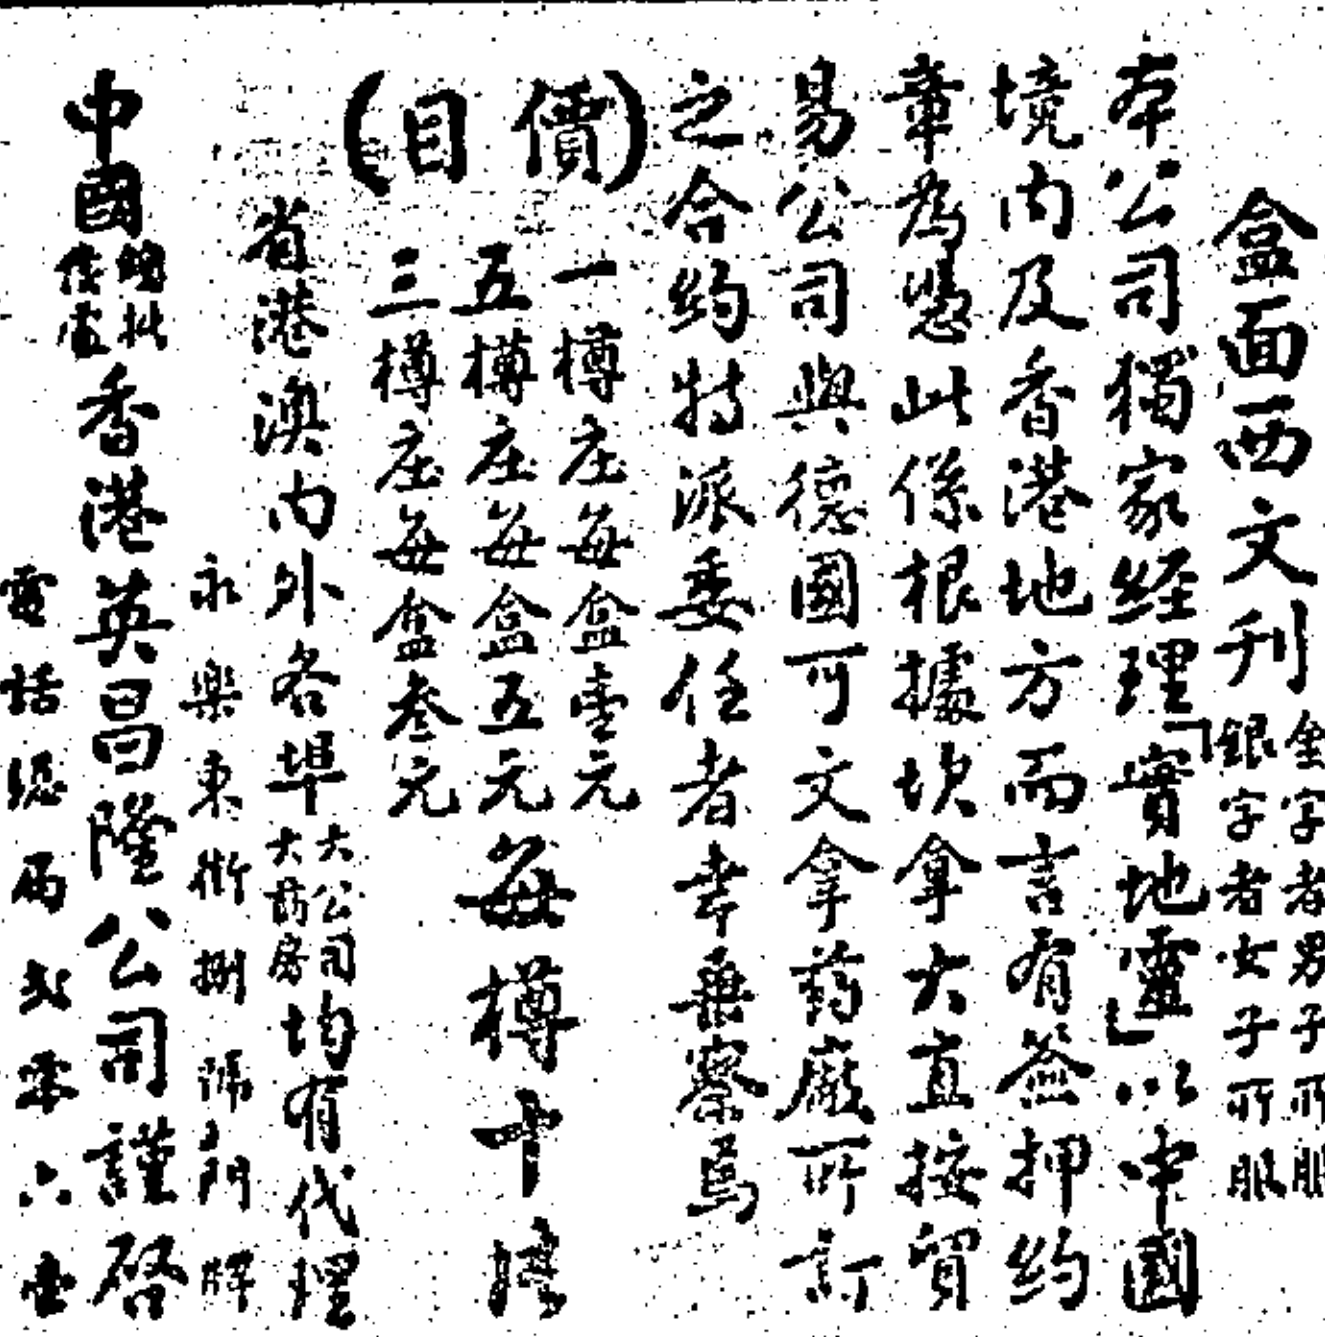 盒面西文刊金字者男子所服銀字者女子所服
本公司獨家經理「實地靈」以中國
境內及香港地方而言有簽押約
章為憑此係根據坎拿大直接貿
易公司與德國可文拿葯廠所訂
之合約特派委任者幸垂察焉
(價目)
一樽庄每盒壹元
五樽庄每盒五元
三樽庄每盒叁元
每樽十
省港澳內外各埠大公司大葯房均有代理
永樂東街捌號門牌
中國總批發處香港英昌隆公司謹啓
電話總局式零六壹